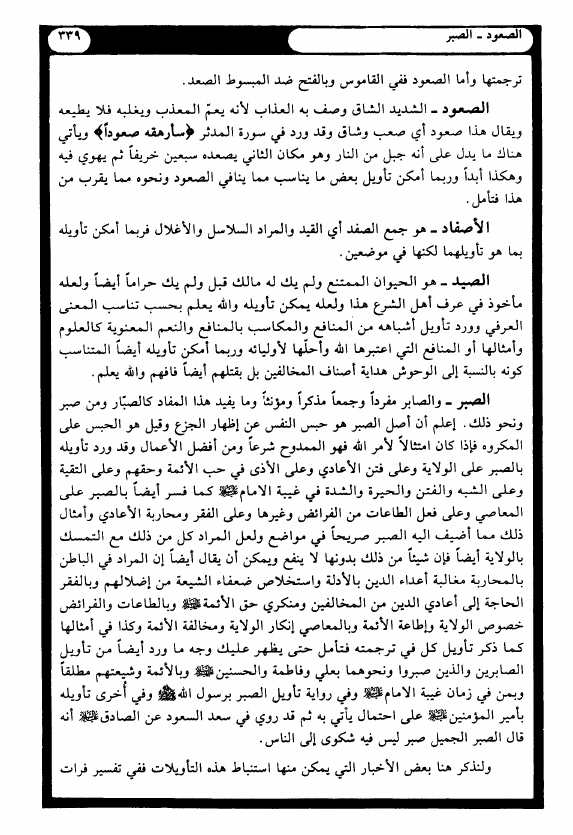 الصعود ـ الصبر
٣٣٩
ترجمتها وأما الصعود ففي القاموس وبالفتح ضد المبسوط الصعد.
الصعود ـ الشديد الشاق وصف به العذاب لأنه يعمّ المعذب ويغلبه فلا يطيعه
ويقال هذا صعود أي صعب وشاق وقد ورد في سورة المدثر ﴿سأرهقه صعوداً﴾ ويأتي
هناك ما يدل على أنه جبل من النار وهو مكان الثاني يصعده سبعين خريفاً ثم يهوي فيه
وهكذا أبداً وربما أمكن تأويل بعض ما يناسب مما ينافي الصعود ونحوه مما يقرب من
هذا فتأمل.
الأصفاد ـ هو جمع الصفد أي القيد والمراد السلاسل والأغلال فربما أمكن تأويله
بما هو تأويلهما لكنها في موضعين.
الصيد ـ هو الحيوان الممتنع ولم يك له مالك قبل ولم يك حراماً أيضاً ولعله
مأخوذ في عرف أهل الشرع هذا ولعله يمكن تأويله والله يعلم بحسب تناسب المعنى
العرفي وورد تأويل أشباهه من المنافع والمكاسب بالمنافع والنعم المعنوية كالعلوم
وأمثالها أو المنافع التي اعتبرها الله وأحلّها لأوليائه وربما أمكن تأويله أيضاً المتناسب
كونه بالنسبة إلى الوحوش هداية أصناف المخالفين بل بقتلهم أيضاً فافهم والله يعلم.
الصبر ـ والصابر مفرداً وجمعاً مذكراً ومؤنثاً وما يفيد هذا المفاد كالصبّار ومن صبر
ونحو ذلك. إعلم أن أصل الصبر هو حبس النفس عن إظهار الجزع وقيل هو الحبس على
المكروه فإذا كان امتثالاً لأمر الله فهو الممدوح شرعاً ومن أفضل الأعمال وقد ورد تأويله
بالصبر على الولاية وعلى فتن الأعادي وعلى الأذى في حب الأئمة وحقهم وعلى التقية
وعلى الشبه والفتن والحيرة والشدة في غيبة الامام كما فسر أيضاً بالصبر على
المعاصي وعلى فعل الطاعات من الفرائض وغيرها وعلى الفقر ومحاربة الأعادي وأمثال
ذلك مما أضيف اليه الصبر صريحاً في مواضع ولعل المراد كل من ذلك مع التمسك
بالولاية أيضاً فإن شيئاً من ذلك بدونها لا ينفع ويمكن أن يقال أيضاً إن المراد في الباطن
بالمحاربة مغالبة أعداء الدين بالأدلة واستخلاص ضعفاء الشيعة من إضلالهم وبالفقر
الحاجة إلى أعادي الدين من المخالفين ومنكري حق الأئمة وبالطاعات والفرائض
خصوص الولاية وإطاعة الأئمة وبالمعاصي إنكار الولاية ومخالفة الأئمة وكذا في أمثالها
كما ذكر تأويل كل في ترجمته فتأمل حتى يظهر عليك وجه ما ورد أيضاً من تأويل
الصابرين والذين صبروا ونحوهما بعلي وفاطمة والحسنين وبالأئمة وشيعتهم مطلقاً
وبمن في زمان غيبة الامام وفي رواية تأويل الصبر برسول الله وفي أخرى تأويله
بأمير المؤمنين على احتمال يأتي به ثم قد روي في سعد السعود عن الصادق أنه
قال الصبر الجميل صبر ليس فيه شكوى إلى الناس.
ولنذكر هنا بعض الأخبار التي يمكن منها استنباط هذه التأويلات ففي تفسير فرات